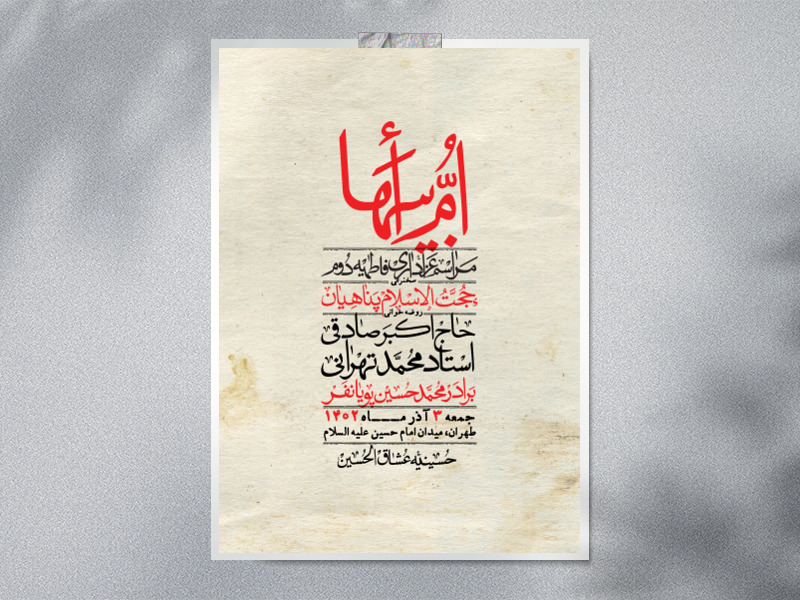 اُمّ اَبیها
مراسم عزاداری فاطمیه دوم
سخنرانی
حُجَّتُ الاسلام پَناهیان
روضه خوانی
حاج اکبر صادقی
استاد محمد تهرانی
برادر محمد حسین پویانفر
جمعه ۳ آذر مـــاه ۱۴۰۲
طهران، میدان امام حسین علیه السلام
حسینیه عشاق الحسین